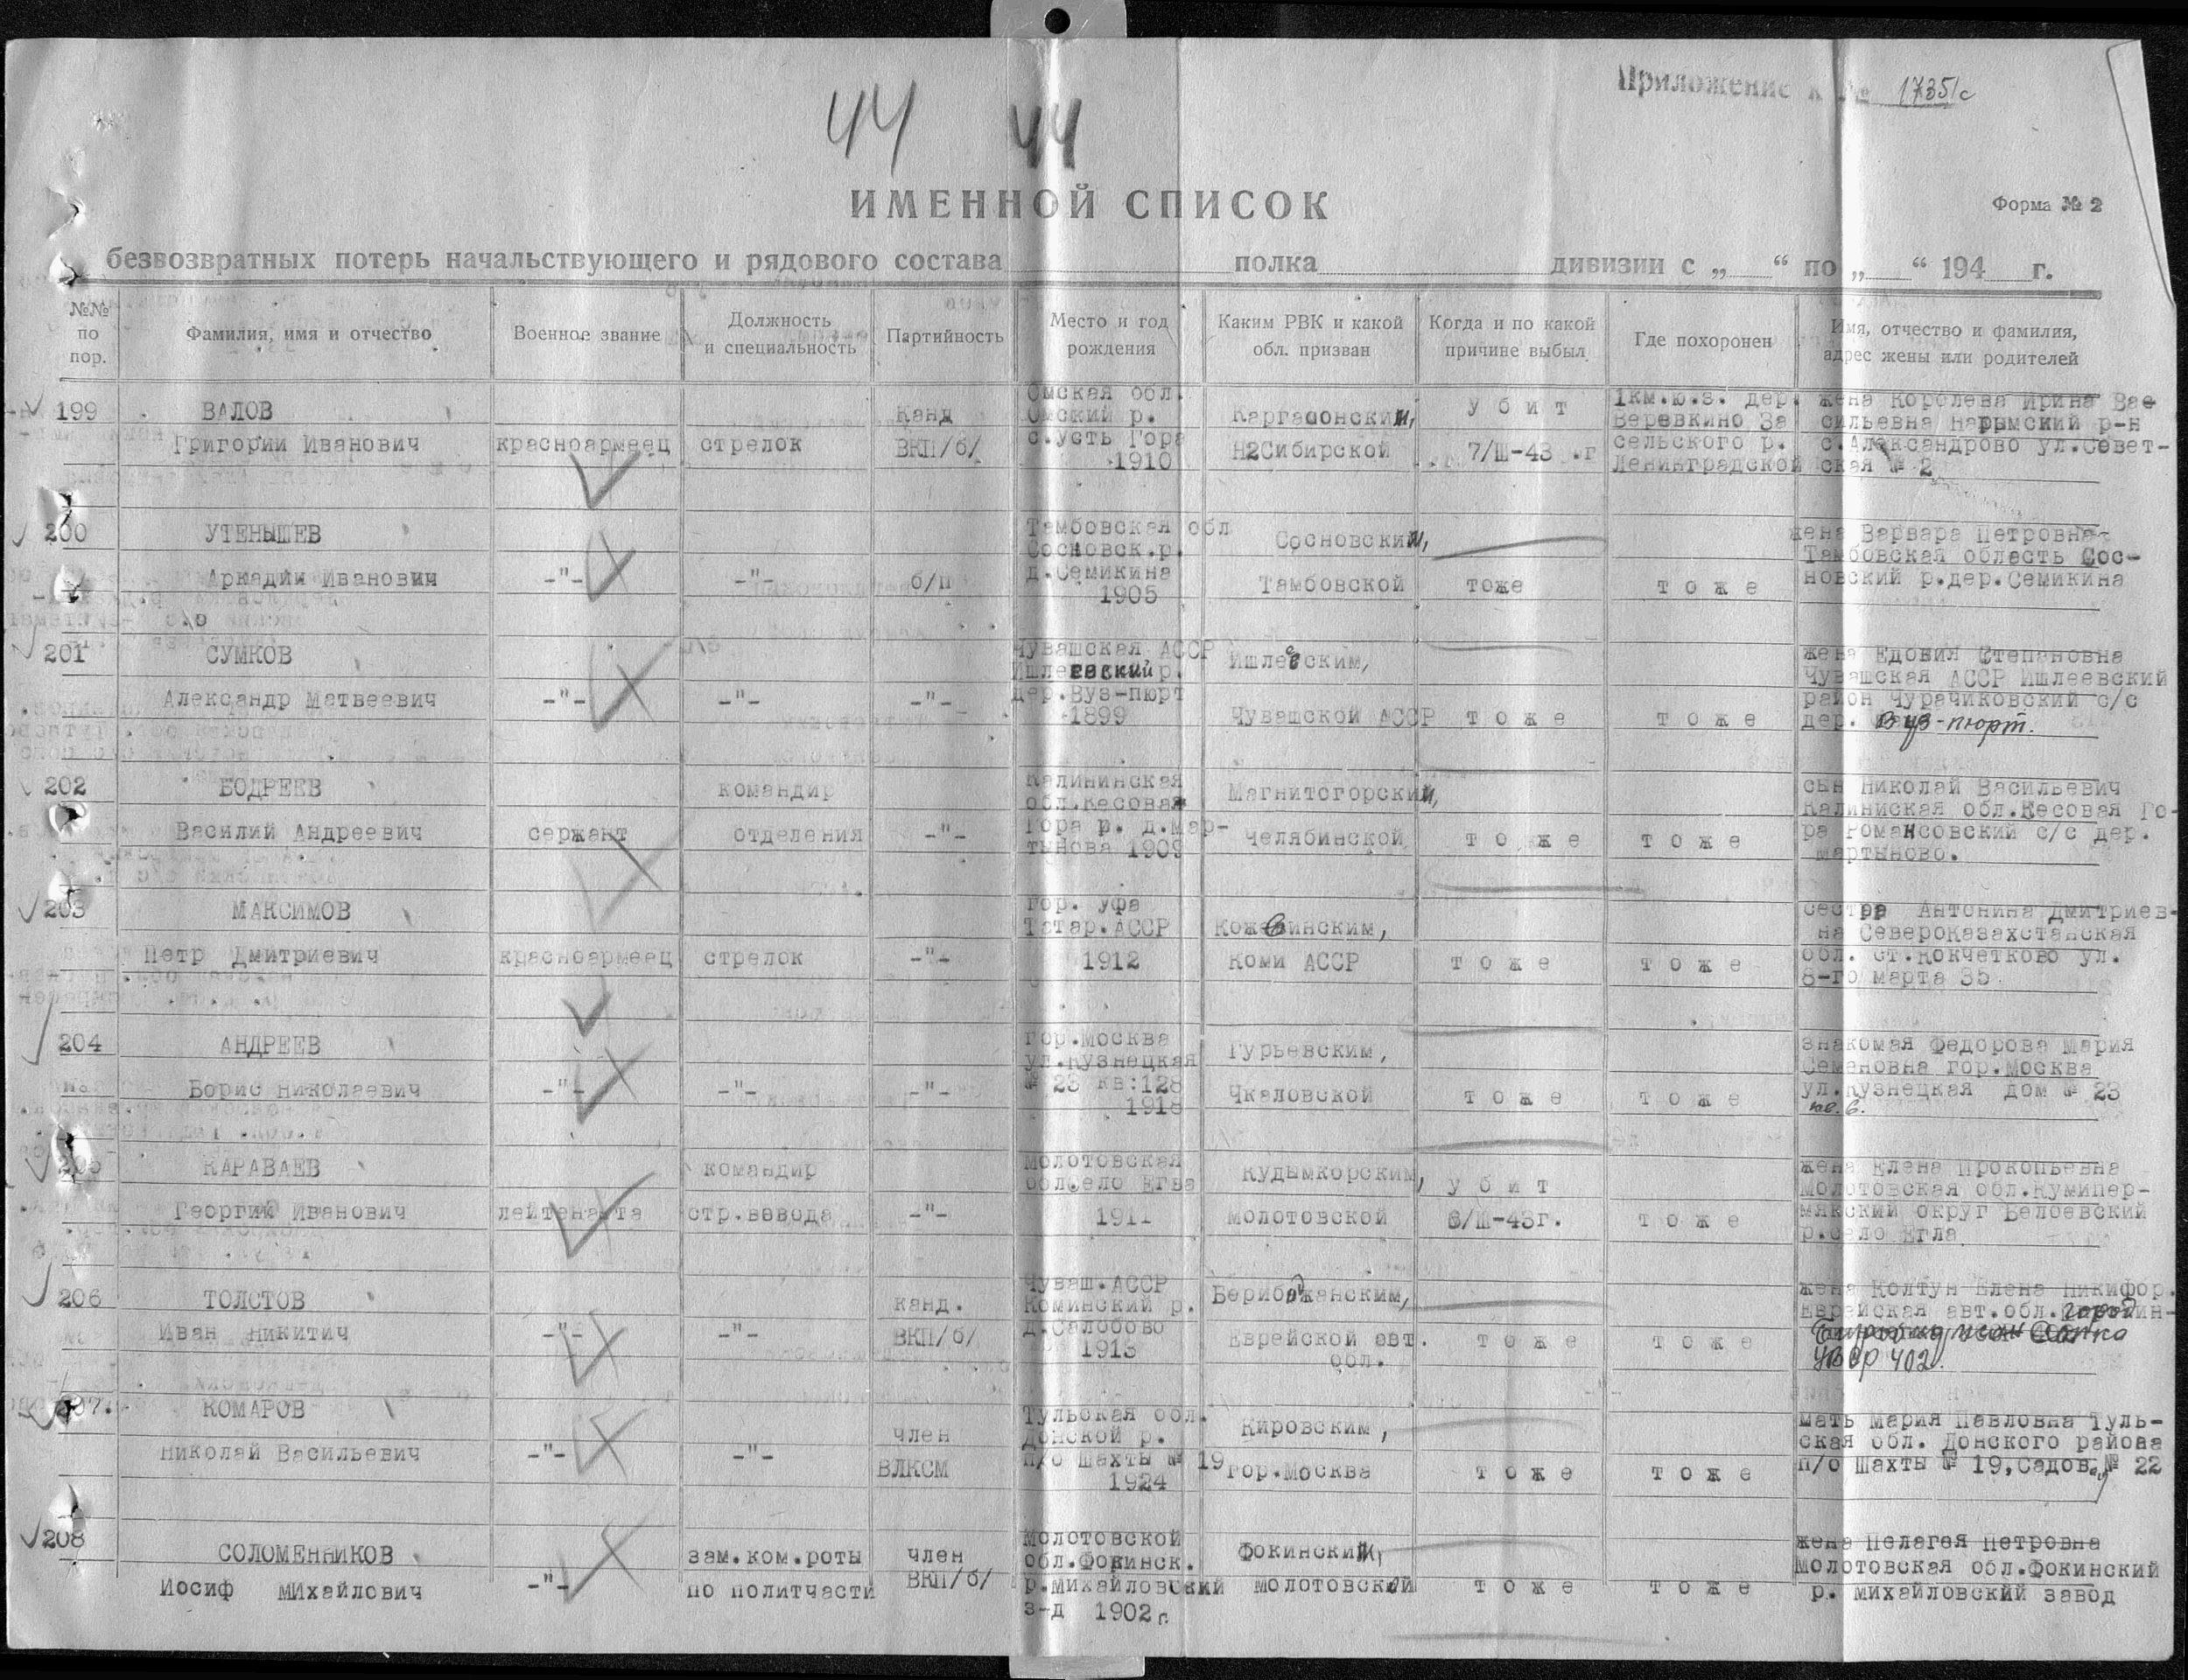 Приложение к № 17351с
44 44
ИМЕННОЙ СПИСОК
Форма № 2
безвозвратных потерь начальствующего и рядового состава полка дивизии с „ “ по „ “ 194 г.
№№ по пор.
Фамилия, имя и отчество
Военное звание
Должность и специальность
Партийность
Место и год рождения
Каким РВК и какой обл. призван
Когда и по какой причине выбыл
Где похоронен
Имя, отчество и фамилия, адрес жены или родителей
199
ВАЛОВ
Григории Иванович
красноармеец
стрелок
Канд
ВКП/б/
Омская обл.
Омский р.
с.Усть Гора
1910
Каргасонский,
Н2Сибирской
У б и т
7/Ш-43 .г
1км.ю.з. дер.
Веревкино За
сельского р.
Ленинградской
жена Королева Ирина Вас
сильевна Нарымский р-н
с.Александрово ул.Совет-
ская № 2
200
УТЕНЫШЕВ
Аркадии Иванович
-"-
-"-
б/п
Тамбовская обл
Сосновск.р.
д.Семикина
1905
Сосновский,
Тамбовской
тоже
т о ж е
жена Варвара Петровна-
Тамбовская область Сос-
новский р.дер.Семикина
201
СУМКОВ
Александр Матвеевич
-"-
-"-
-"-
Чувашская АССР
Ишлеевский р.
дер.Вуз-пюрт
1899
Ишлеевским,
Чувашской АССР
т о ж е
т о ж е
жена Едовия Степановна
Чувашская АССР Ишлеевский
район Чурачиковский с/с
дер. Вуз-пюрт.
202
БОДРЕЕВ
Василий Андреевич
сержант
командир
отделения
-"-
Калининская
обл.Кесовая
Гора р. д.Мар-
тынова 1909
Магнитогорский,
Челябинской
т о ж е
т о ж е
сын Николай Васильевич
Калиниская обл.Кесовая Го-
ра Романсовский с/с дер.
Мартыново.
203
МАКСИМОВ
Петр Дмитриевич
красноармеец
стрелок
-"-
гор. Уфа
Татар.АССР
1912
Кожвинским,
Коми АССР
т о ж е
т о ж е
сестра Антонина Дмитриев-
на Североказахстанская
обл. ст.Кокчетково ул.
8-го марта 35
204
АНДРЕЕВ
Борис Николаевич
-"-
-"-
-"-
гор.Москва
ул.Кузнецкая
№ 23 кв:128
1918
Гурьевским,
Чкаловской
т о ж е
т о ж е
знакомая Федорова Мария
Семановна гор.Москва
ул.Кузнецкая дом № 23
кв. 6.
205
КАРАВАЕВ
Георгий Иванович
лейтенанта
командир
стр.взвода
-"-
Молотовская
обл.село Егва
1911
Кудымкорским,
Молотовской
у б и т
6/Ш-43г.
т о ж е
жена Елена Прокопьевна
Молотовская обл.Кумипер-
мякский округ Белоевский
р.село Егла
206
ТОЛСТОВ
Иван Никитич
-"-
-"-
канд.
ВКП/б/
Чуваш.АССР
Коминский р.
д.Салобово
1913
Берибджанским,
Еврейской авт.
обл.
т о ж е
т о ж е
жена Колтун Елена Никифор.
Еврейская авт.обл. город
207.
КОМАРОВ
Николай Васильевич
-"-
-"-
член
ВЛКСМ
Тульская обл.
Донской р.
п/о Шахты № 19
1924
Кировским,
гор.Москва
т о ж е
т о ж е
мать Мария Павловна Туль-
ская обл. Донского района
п/о Шахты № 19,Садов. № 22
208
СОЛОМЕННИКОВ
Иосиф МИхайлович
-"-
зам.ком.роты
по политчасти
член
ВКП/б/
Молотовской
обл.Фокинск.
р.михайловский
з-д 1902г.
Фокинский,
Молотовский
т о ж е
т о ж е
жена Пелагея Петровна
Молотовская обл.Фокинский
р. михайловский завод